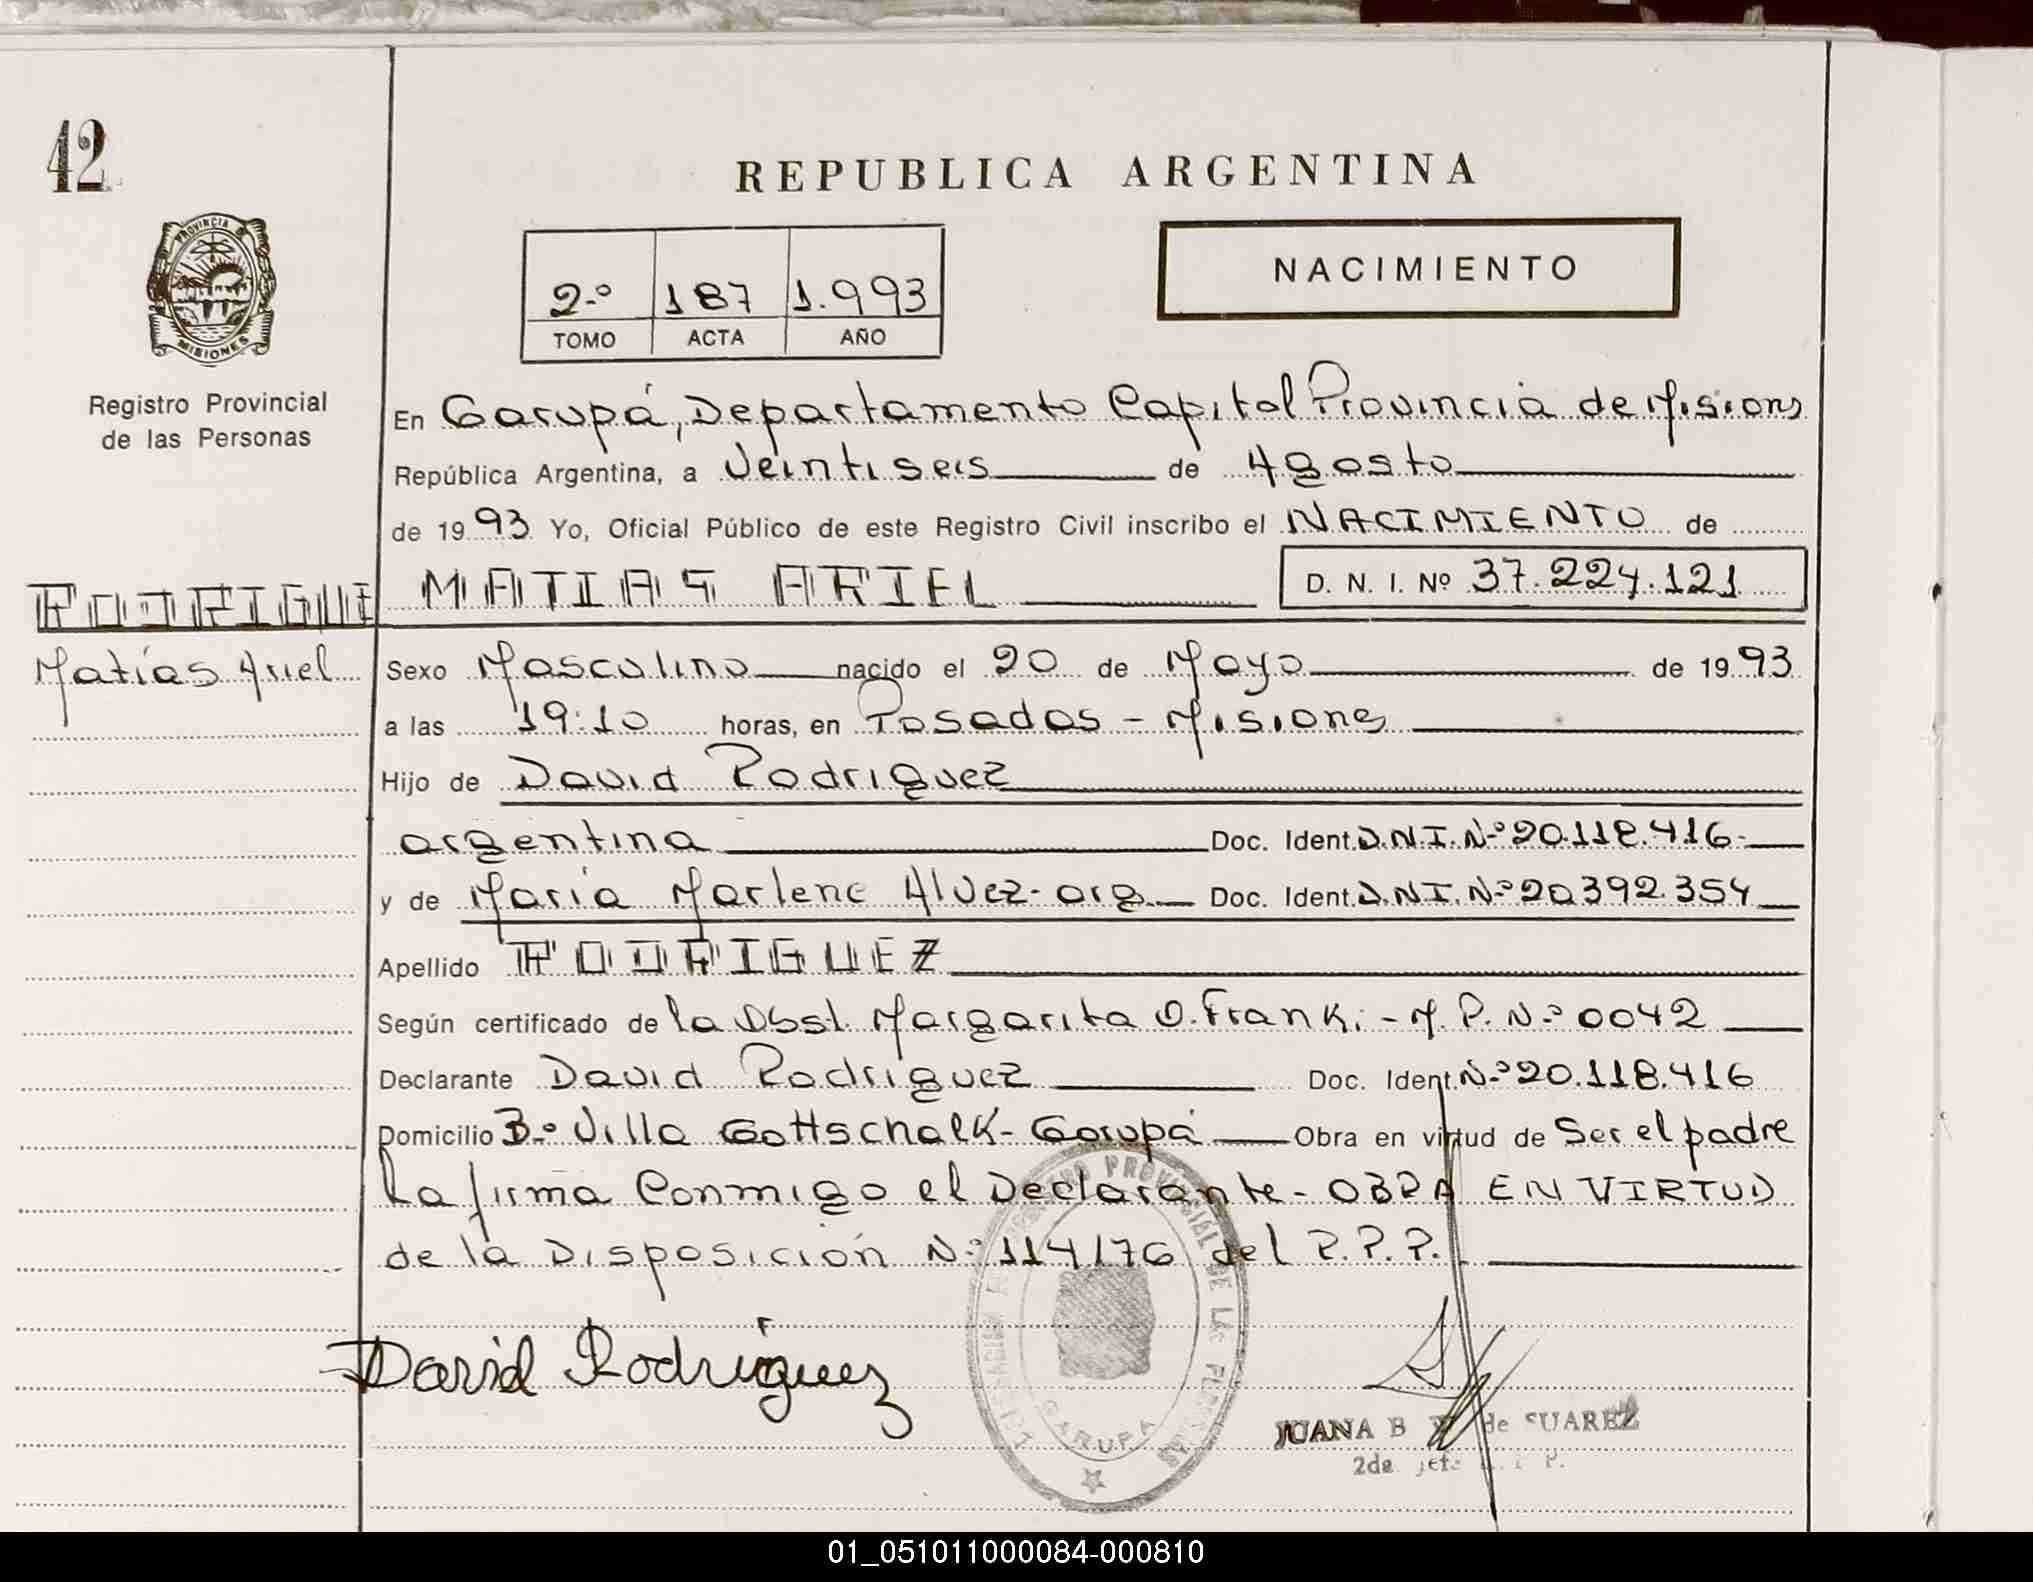 42
REPUBLICA ARGENTINA
PROVINCIA D
MISIONES
Registro Provincial
de las Personas
2º 187 1.993
TOMO ACTA AÑO
NACIMIENTO
En Garupá, Departamento Capital Provincia de Misiones
República Argentina, a Veintiseis de Agosto
de 1993 Yo, Oficial Público de este Registro Civil inscribo el NACIMIENTO de
RODRIGUE MATIAS ARIEL D. N. I. Nº 37.224.121
Matías Ariel Sexo Masculino nacido el 20 de Mayo de 1993
a las 19:10 horas, en Posadas - Misiones
Hijo de David Rodriguez
argentina Doc. Ident. D.N.I. Nº 20.118.416-
y de Maria Marlene Alvez- arg Doc. Ident. D.N.I. Nº 20.392.354
Apellido RODRIGUEZ
Según certificado de la Obst. Margarita O. Franki - M.P. Nº 0042
Declarante David Rodriguez Doc. Ident. Nº 20.118.416
Domicilio Bº Villa Gottschalk- Garupá Obra en virtud de Ser el padre
La firma Conmigo el Declarante - OBRA EN VIRTUD
de la Disposición Nº 114/76 del R.P.P.
David Rodriguez
REGISTRO PROVINCIAL DE LAS PERSONAS
GARUPA
JUANA B de SUAREZ
2da Jefe
01_051011000084-000810